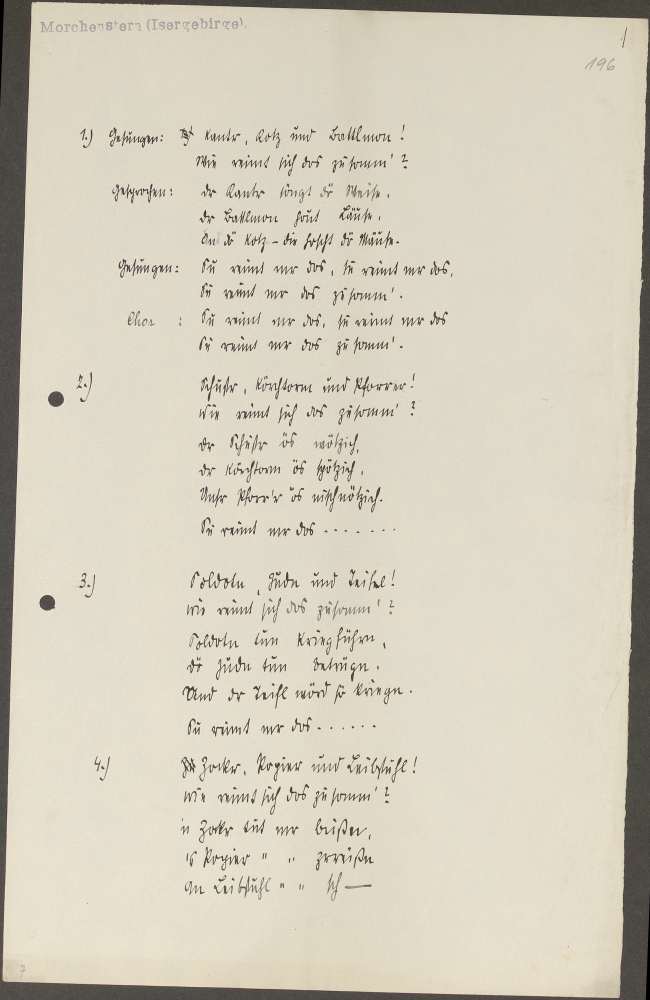 Morchenstern (Isergebirge).
1
196
1.) Gesungen: Kantr, Kotz und Battlmon!
Wie reimt sich dos zusomm'?
Gesprochen: dr Kantr singt de Weise,
dr Battlmon hout Läuse,
An de Kotz - die frscht de Mäuse.
Gesungen: Su reimt mr dos, su reimt mr dos,
Su reimt mr dos zusomm'.
Chor : Su reimt mr dos, su reimt mr dos
Su reimt mr dos zusomm'.
2.) Schustr, Körchtorm und Pforrer!
Wie reimt sich dos zusomm'?
dr Schustr ös wötzich,
dr Körchtorm ös spötzich,
Unsr Pforr'r ös nischnötzich.
Su reimt mr dos - - - - - - -
3.) Soldotn, Judn und Teifel!
wie reimt sich dos zusomm'?
Soldotn tun Kriegführn,
dö Judn tun betrügn.
Und dr Teifl wörd sö kriegn.
Su reimt mr dos - - - - - -
4.) Zockr, Popier und Leibstuhl!
Wie reimt sich dos zusomm'?
'n Zockr tut mr beißen,
's Popier " " zerreißn
An Leibstuhl " " sch —